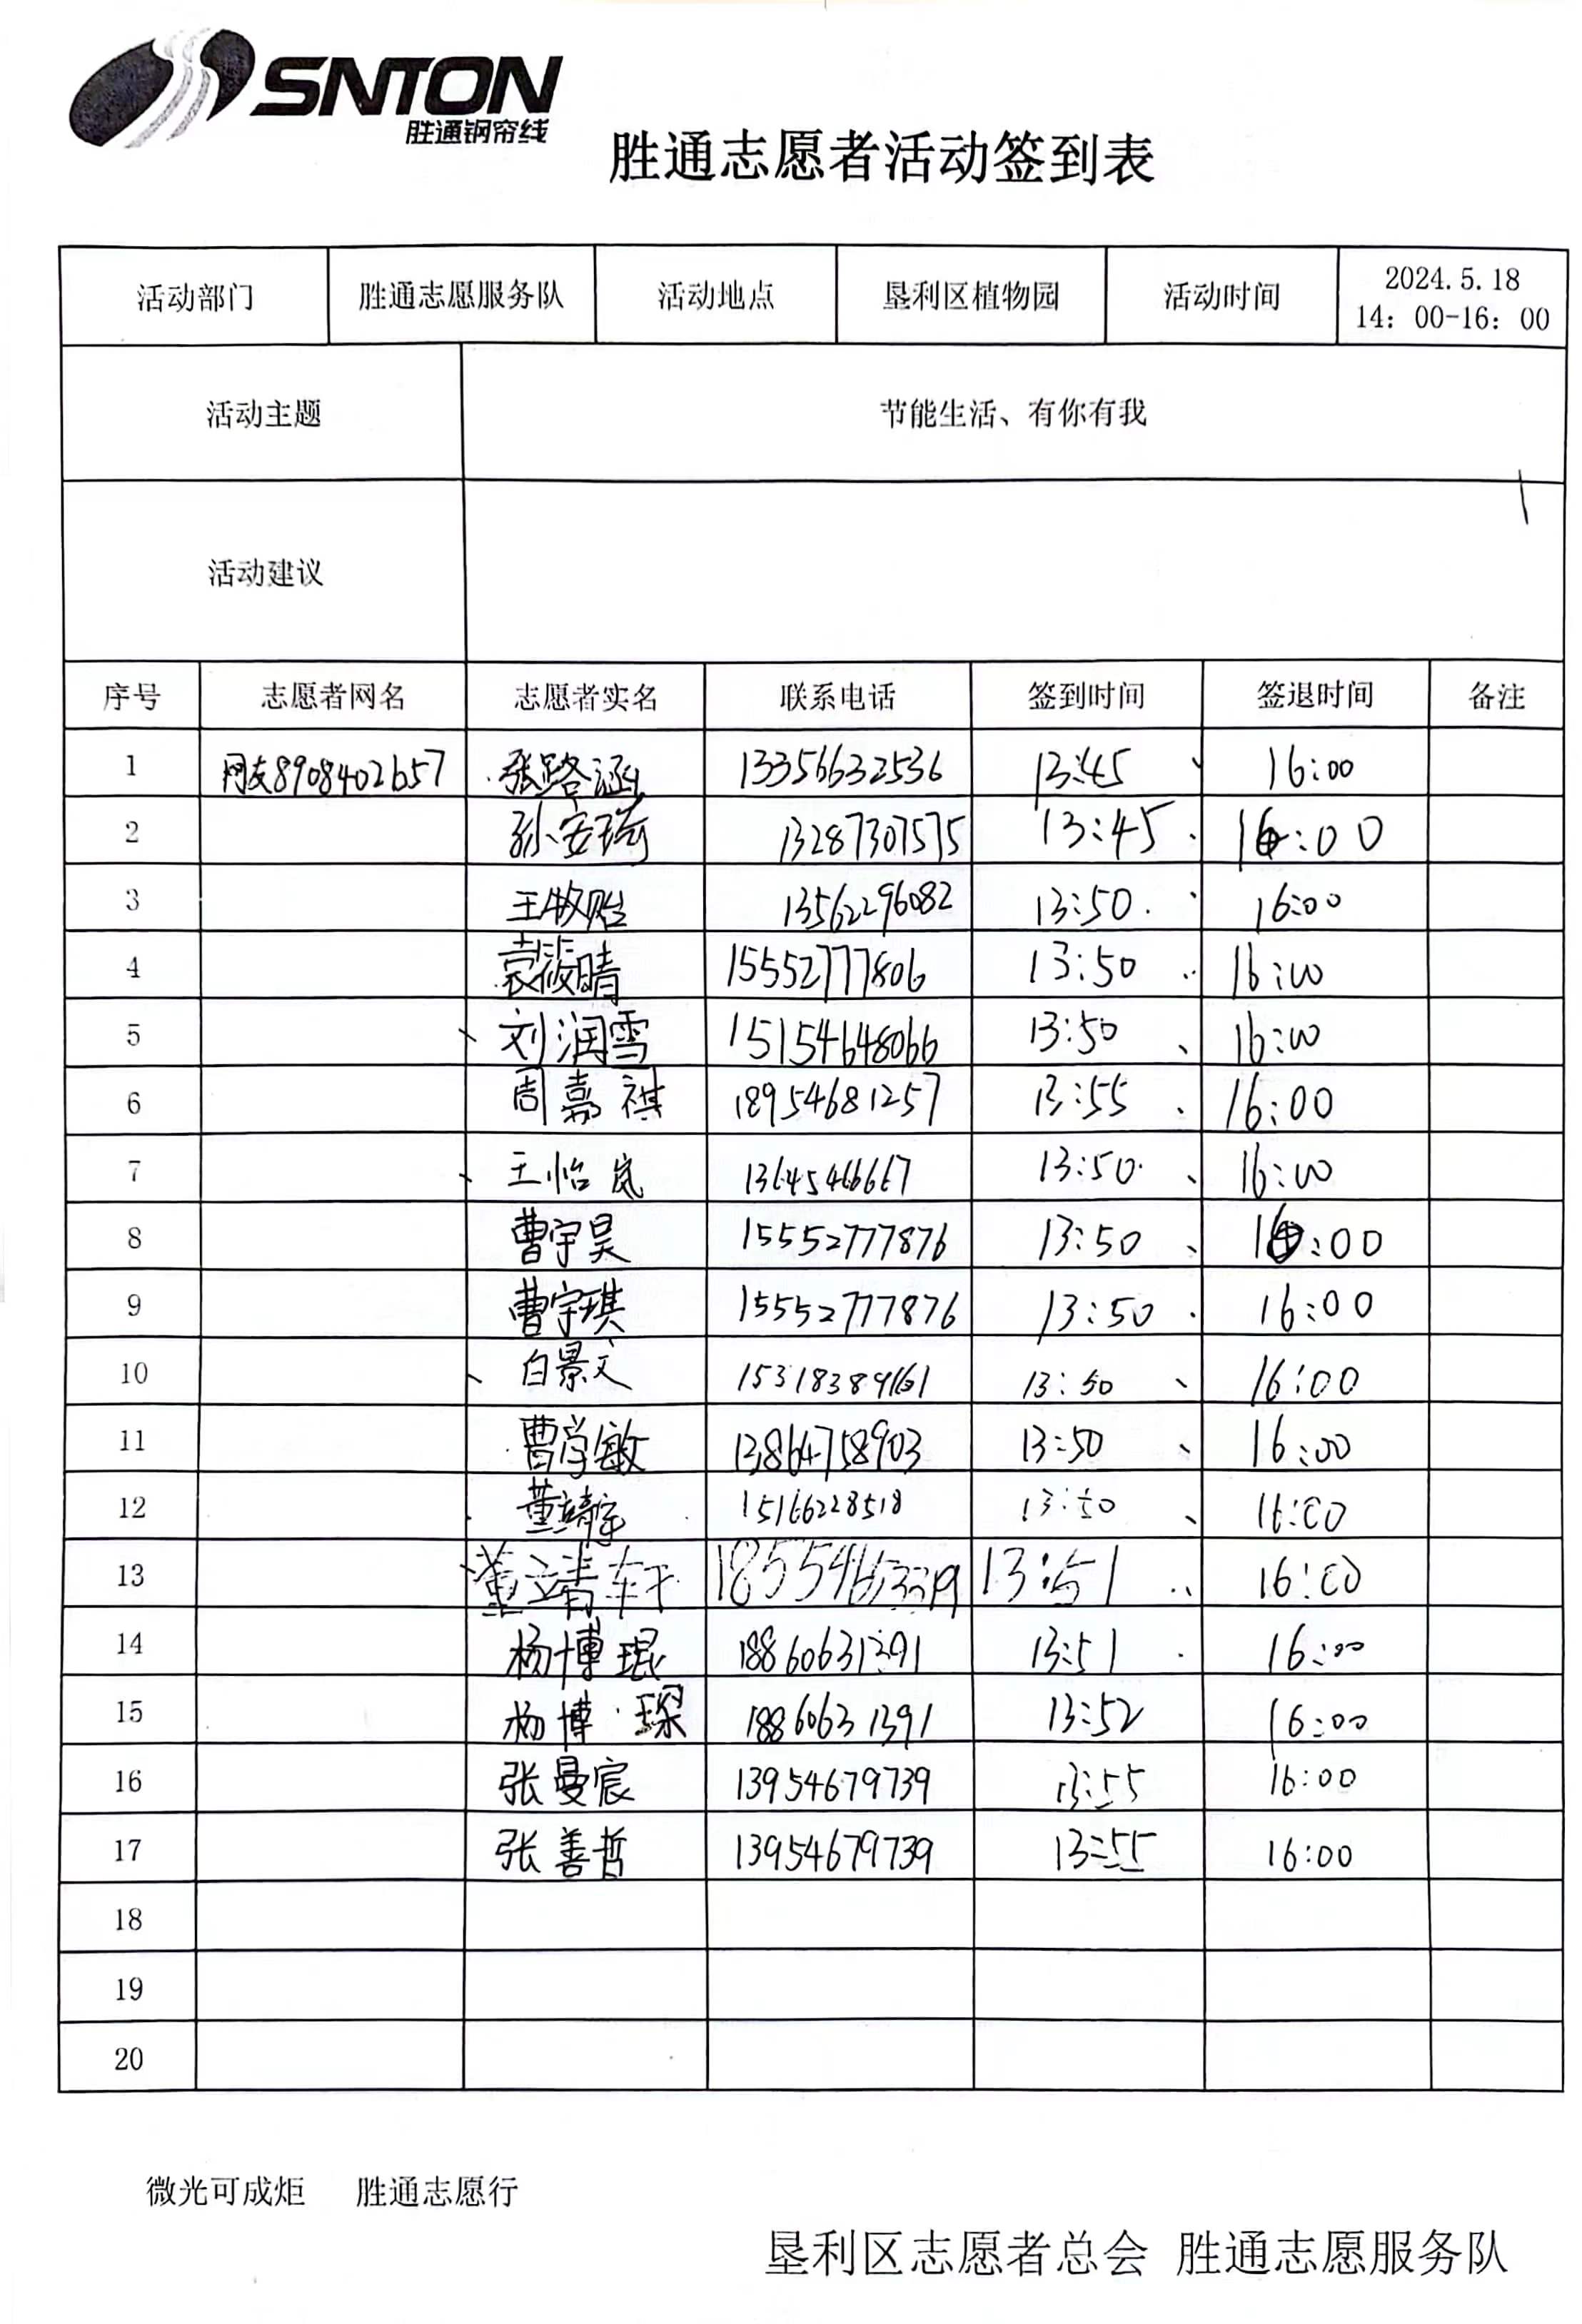 SNTON
胜通钢帘线
胜通志愿者活动签到表
活动部门 胜通志愿服务队 活动地点 垦利区植物园 活动时间 2024.5.18
14：00-16：00
活动主题 节能生活、有你有我
活动建议
序号 志愿者网名 志愿者实名 联系电话 签到时间 签退时间 备注
1 网友8908402657 张路涵 13356632536 13:45 16:00
2 孙安琦 13287307575 13:45 16:00
3 王牧贻 13562296082 13:50 16:00
4 袁筱晴 15552777806 13:50 16:00
5 刘润雪 15154648066 13:50 16:00
6 周嘉祺 18954681257 13:55 16:00
7 王怡岚 13:50 16:00
8 曹宇昊 15552777876 13:50 16:00
9 曹宇琪 15552777876 13:50 16:00
10 白景文 13:50 16:00
11 曹学敏 13864758903 13:50 16:00
12 15166228518 13:50 16:00
13 董靖轩 13:51 16:00
14 杨博琨 18860631391 13:51 16:00
15 杨博琛 18860631391 13:52 16:00
16 张曼宸 13954679739 13:55 16:00
17 张善哲 13954679739 13:55 16:00
18
19
20
微光可成炬 胜通志愿行
垦利区志愿者总会 胜通志愿服务队